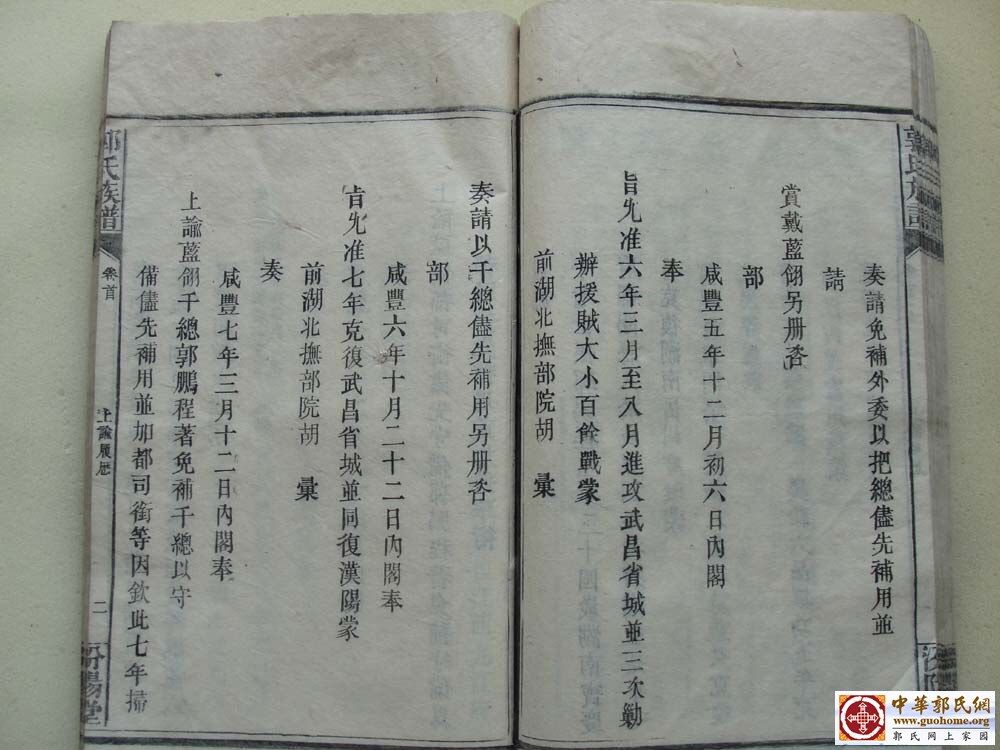 奏請免補外委以把總儘先補用並
請
賞戴藍翎另册咨
部
咸豐五年十二月初六日內閣
奉
旨允准六年三月至八月進攻武昌省城並三次勦
辦援賊大小百餘戰蒙
前湖北撫部院胡 彙
奏請以千總儘先補用另册咨
部
咸豐六年十月二十二日內閣奉
旨允准七年克復武昌省城並同復漢陽蒙
前湖北撫部院胡 彙
奏
咸豐七年三月十二日內閣奉
上諭藍翎千總郭鵬程著免補千總以守
備儘先補用並加都司銜等因欽此七年掃
郭氏族譜 卷首 上諭履歷 二 汾陽堂
中華郭氏網
www.guohome.org
郭氏网上家園